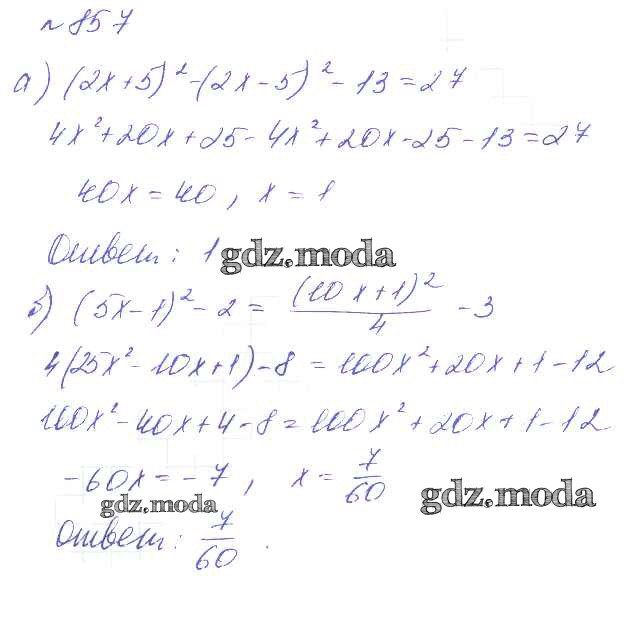 №857
а) (2x+5)² - (2x-5)² - 13 = 27
4x² + 20x + 25 - 4x² + 20x - 25 - 13 = 27
40x = 40, x = 1
Ответ: 1 gdz.moda
б) (5x-1)² - 2 = (10x+1)²/4 - 3
4(25x² - 10x + 1) - 8 = 100x² + 20x + 1 - 12
100x² - 40x + 4 - 8 = 100x² + 20x + 1 - 12
-60x = -7, x = 7/60
gdz.moda gdz.moda
Ответ: 7/60.